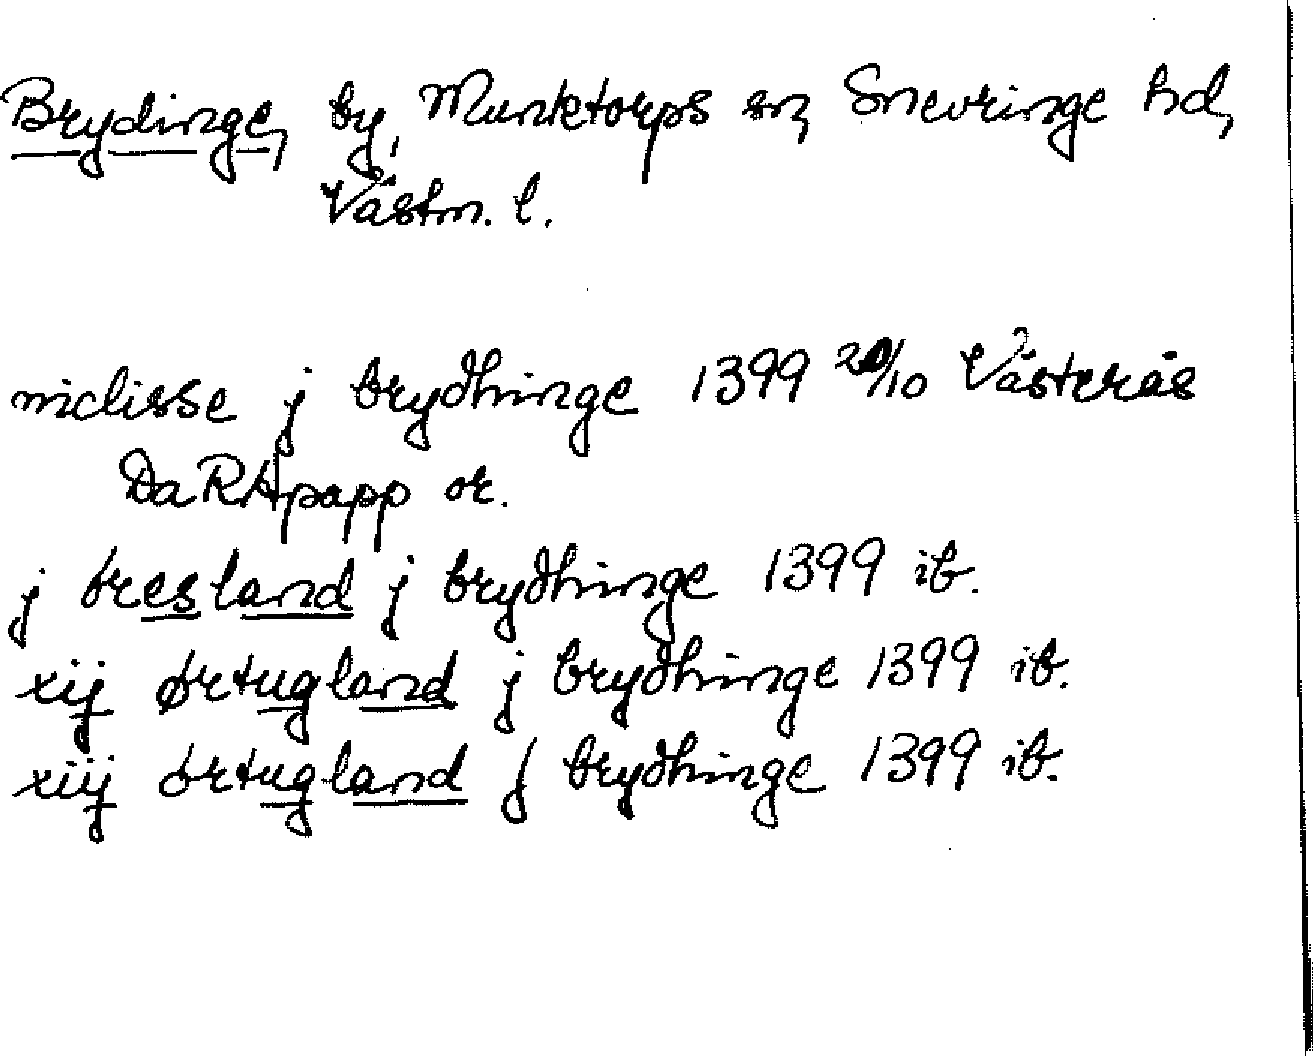 Brydinge, by, Munktorps sn, Snevringe hd,
Västm. l.
niclisse j brydhinge 1399 20/10 Västerås
DaRApapp or.
j øresland j brydhinge 1399 ib.
xij ørtugland j brydhinge 1399 ib.
xiij ørtugland j brydhinge 1399 ib.